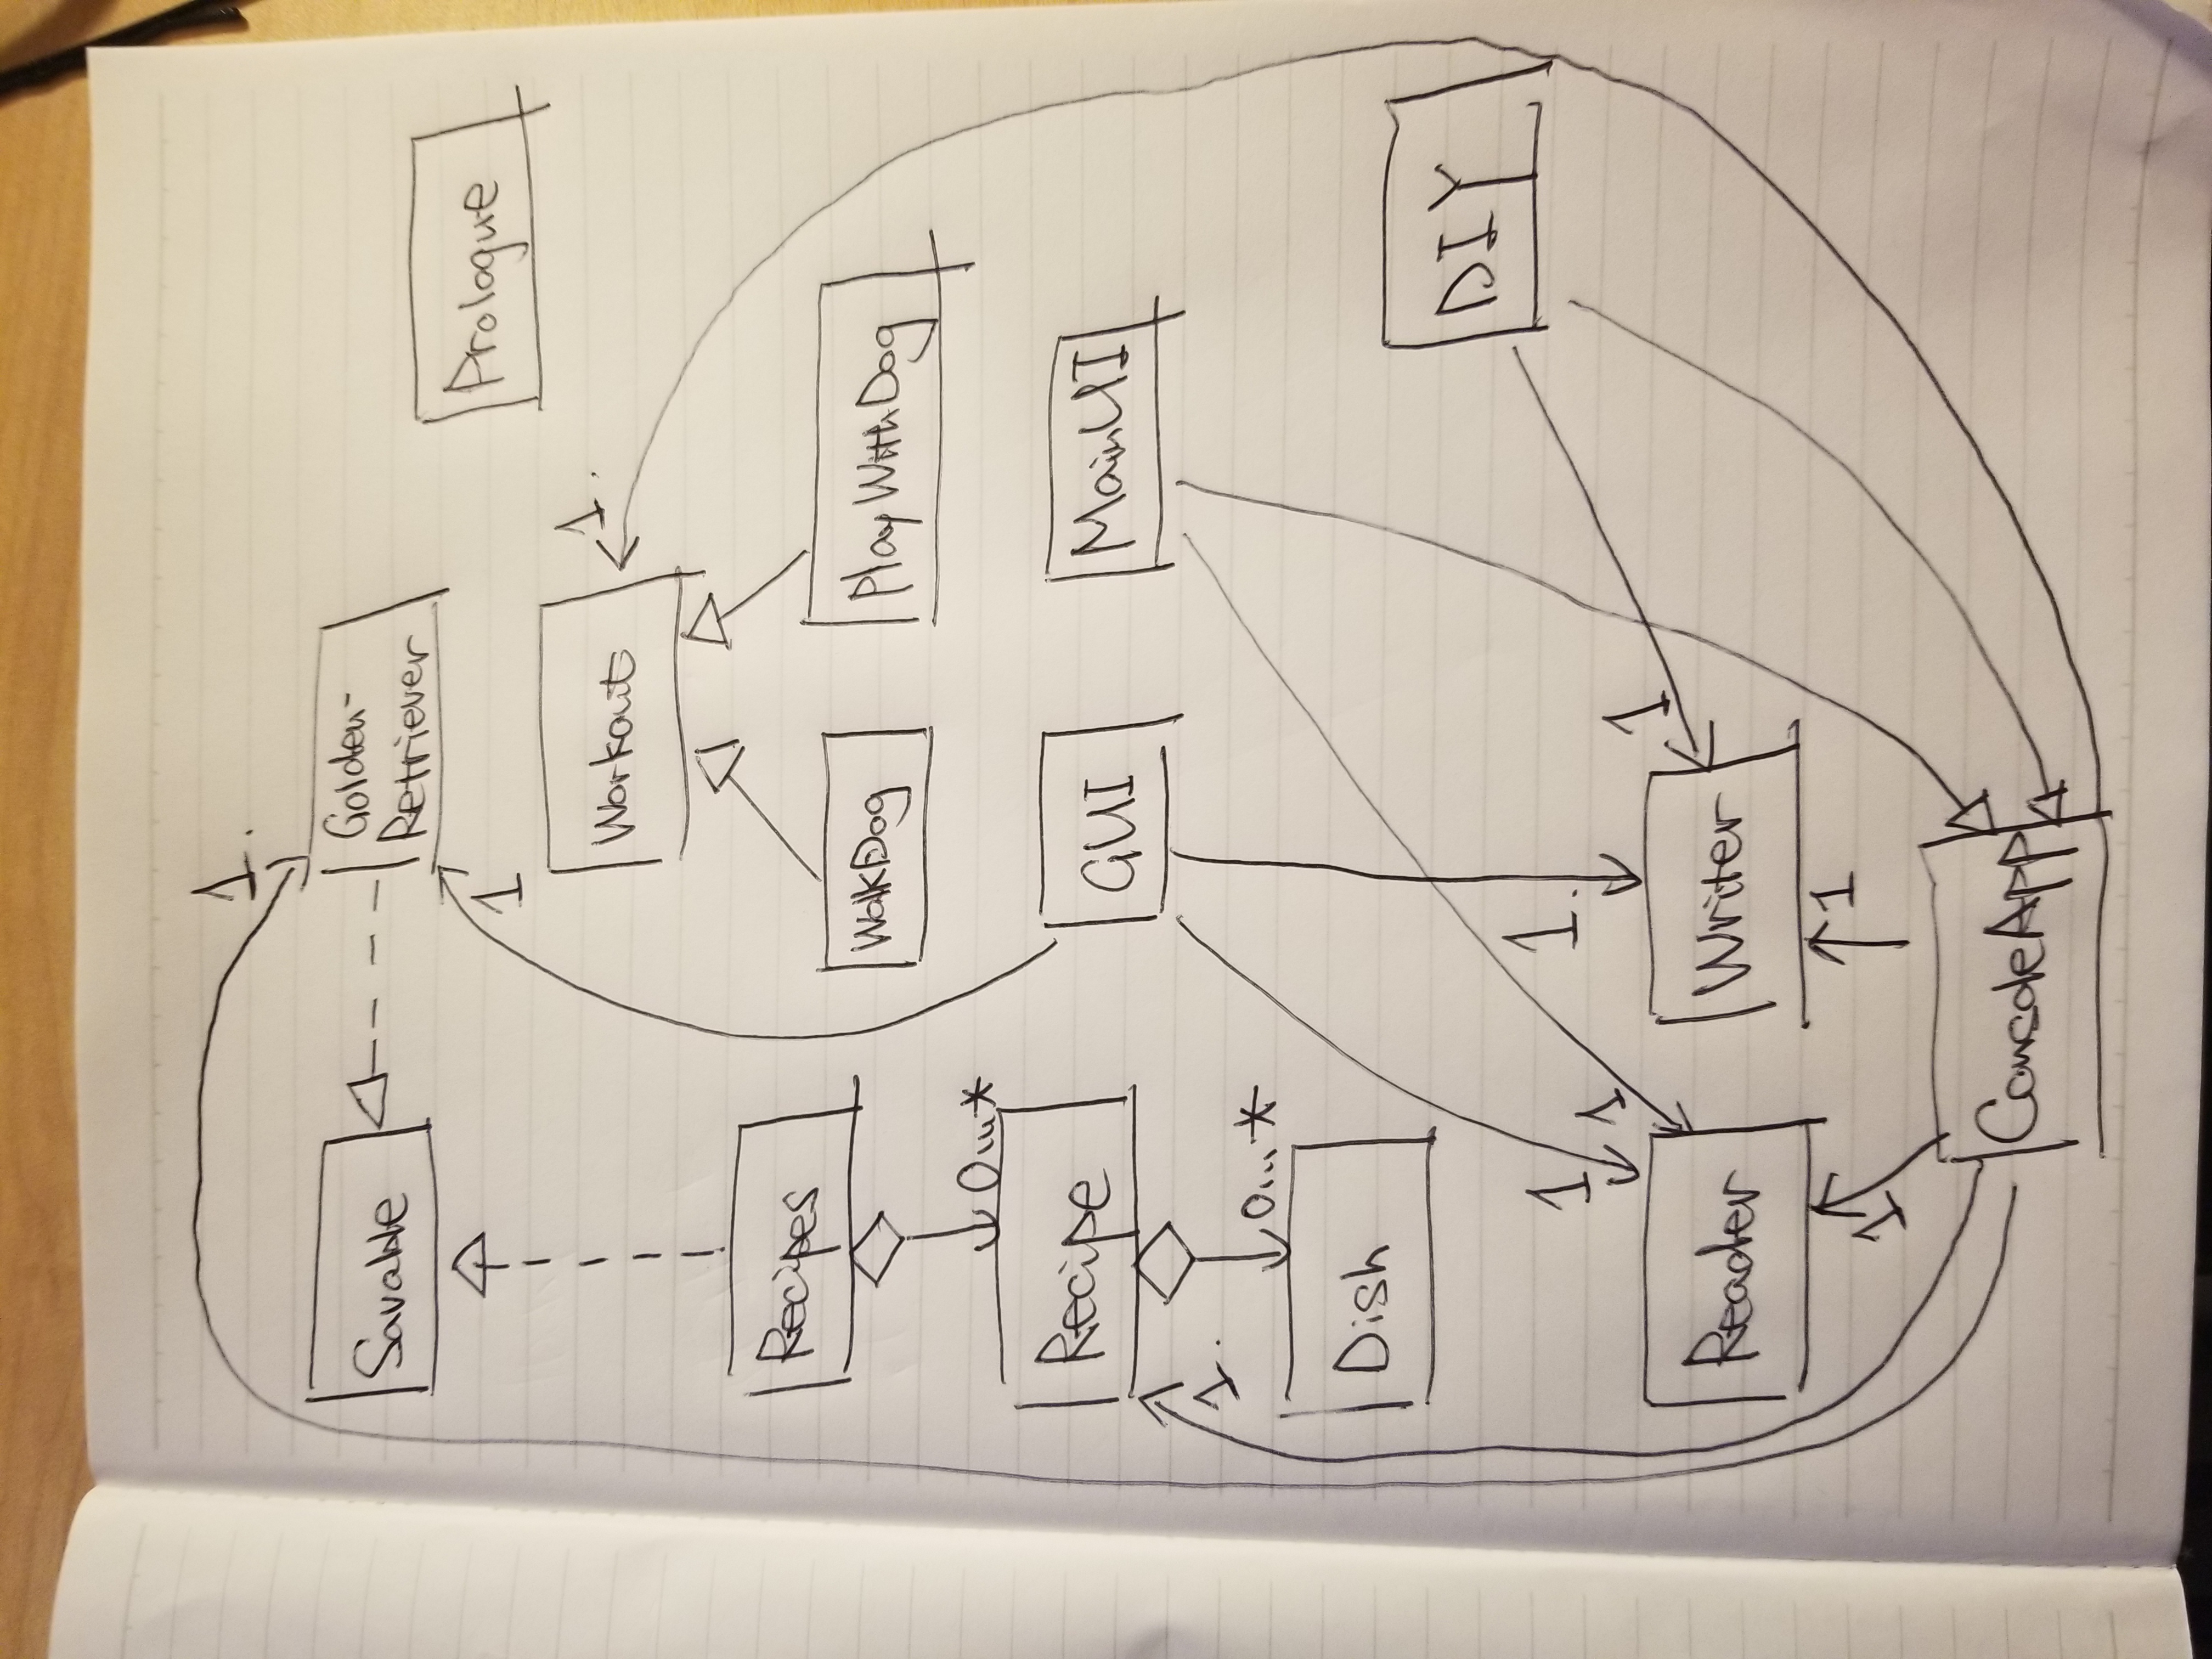 1.
Savable
Golden-
Retriever
Prologue
1
1.
Workout
Recipes
WalkDog
PlayWithDog
0...*
Recipe
GUI
MainUI
1.
0...*
Dish
DIY
1
1
1.
1
Reader
Writer
1
1
ConsoleApp